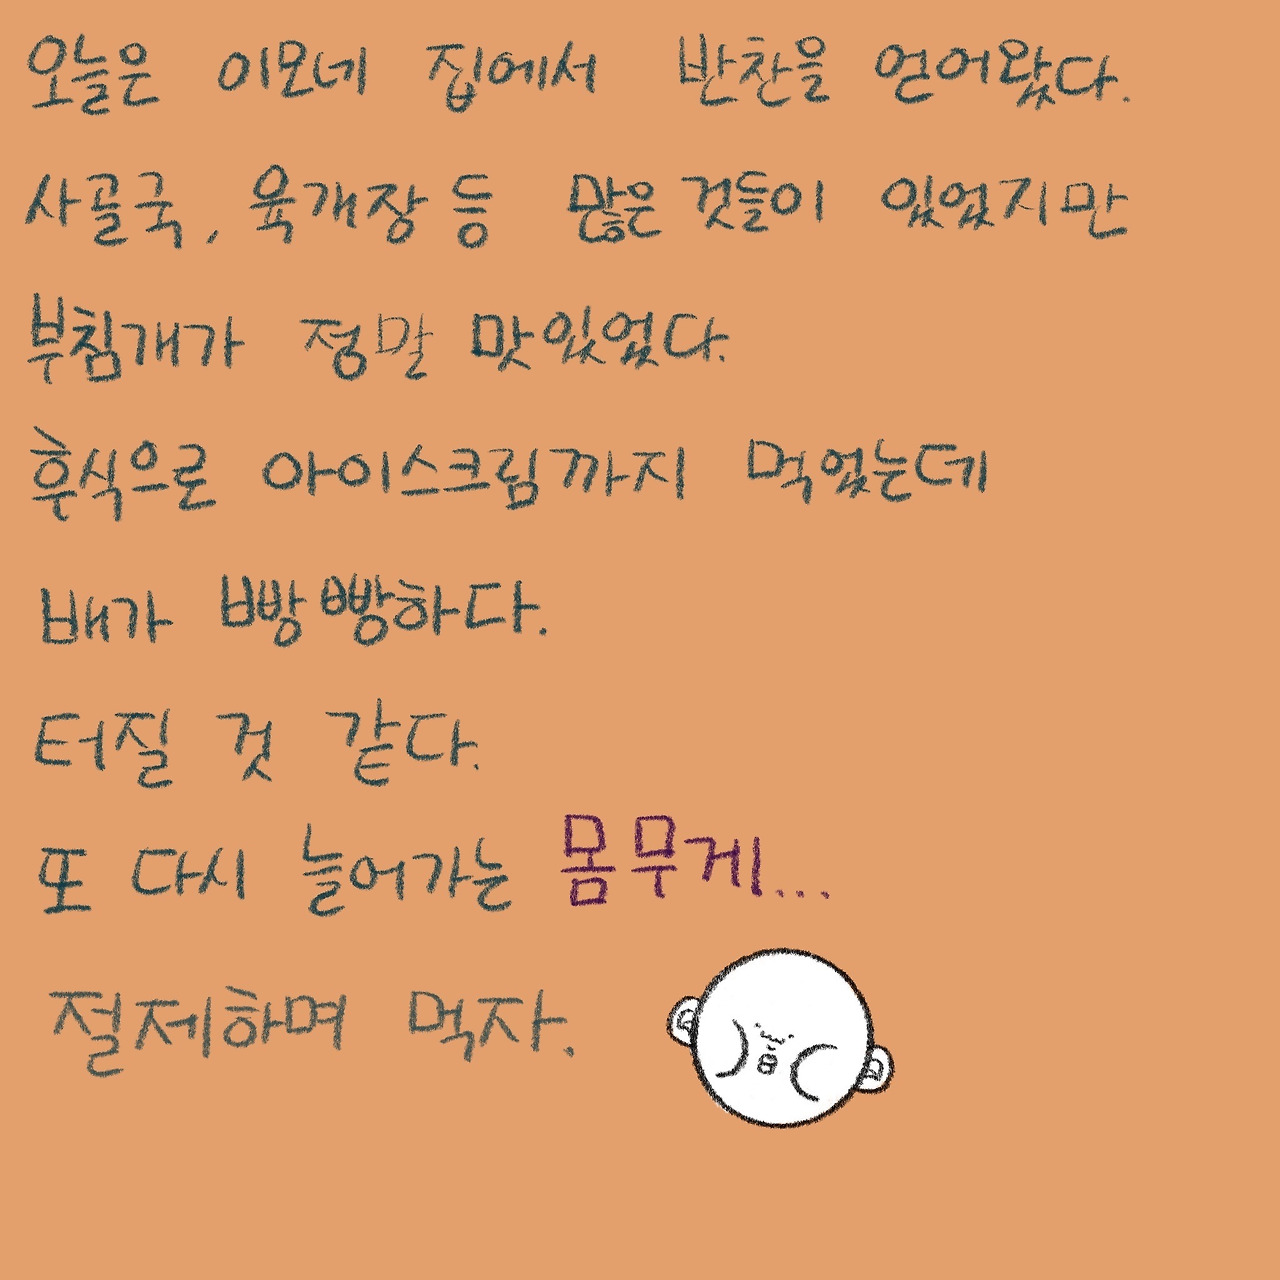 오늘은 이모네 집에서 반찬을 얻어왔다.
사골국, 육개장 등 많은 것들이 있었지만
부침개가 정말 맛있었다.
후식으로 아이스크림까지 먹었는데
배가 빵빵하다.
터질 것 같다.
또 다시 늘어가는 몸무게...
절제하며 먹자.